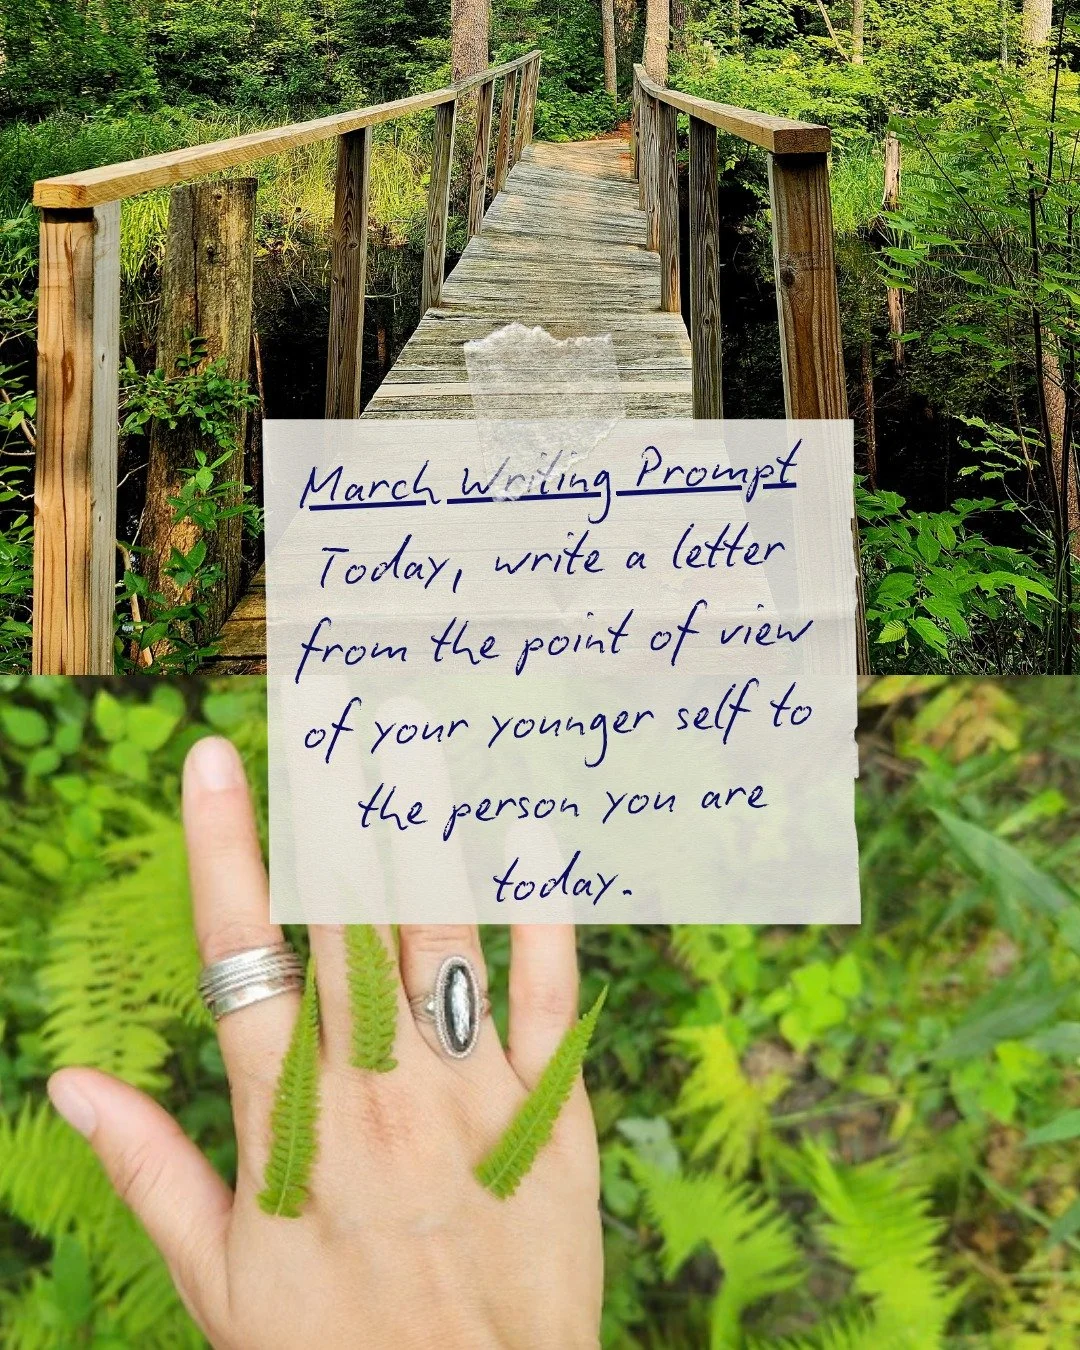 March Writing Prompt
Today, write a letter
from the point of view
of your younger self to
the person you are
today.